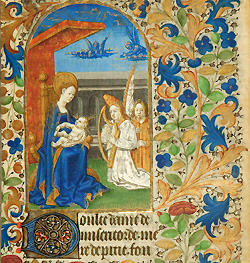 Doulce dame de
misericorde me
re de pitie fon